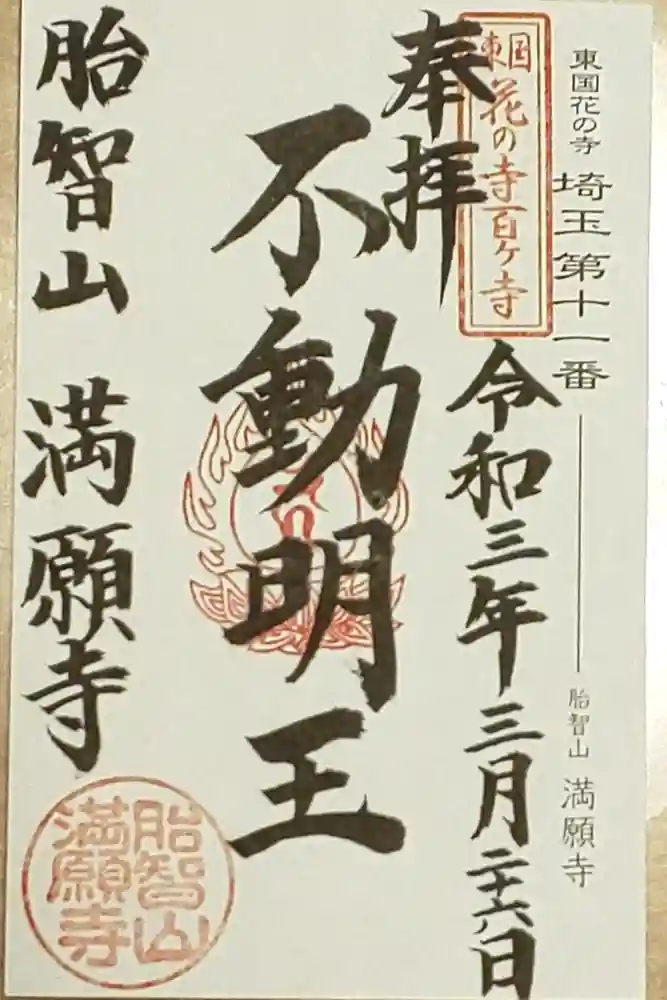 東国花の寺 埼玉第十一番
胎智山 満願寺
東国花の寺百ヶ寺
奉拝
令和三年三月二十六日
不動明王
胎智山 満願寺
胎智山
満願寺